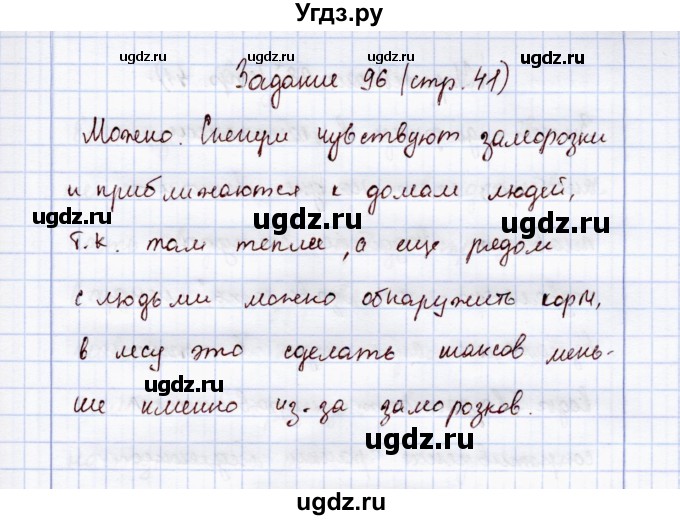 Угдз.ру
ugdz.ru ugdz.ru ugdz.ru
Задание 96 (стр. 41)
ugdz.ru ugdz.ru
Можно. Снегири чувствуют заморозки
и приближаются к домам людей,
ugdz.ru ugdz.ru ugdz.ru
т.к. там теплее, а еще рядом
ugdz.ru
с людьми можно обнаружить корм,
ugdz.ru ugdz.ru
в лесу это сделать шансов мень-
ugdz.ru
ше именно из-за заморозков.
ugdz.ru
ugdz.ru